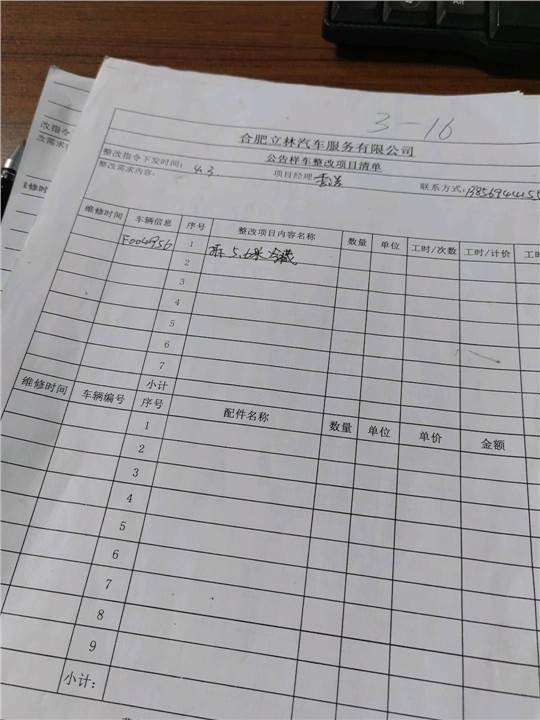 3-16
合肥立林汽车服务有限公司
公告样车整改项目清单
整改指令下发时间: 4.3 项目经理 联系方式:
整改需求内容:
维修时间 车辆信息 序号 整改项目内容名称 数量 单位 工时/次数 工时/计价 工时
F004956 1 5.6米冷藏
2
3
4
5
6
7
小计
维修时间 车辆编号 序号 配件名称 数量 单位 单价 金额
1
2
3
4
5
6
7
8
9
小计: